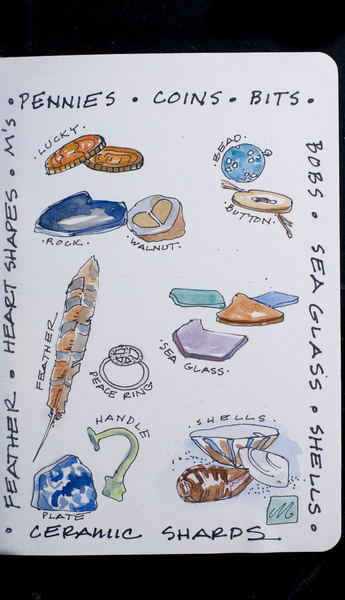 • PENNIES • COINS • BITS •
BOBS • SEA GLASS • SHELLS •
CERAMIC SHARDS
• FEATHER • HEART SHAPES • M's •
• LUCKY •
BEAD
BUTTON •
• ROCK •
• WALNUT •
FEATHER
PEACE RING
• SEA GLASS •
HANDLE
• SHELLS •
PLATE